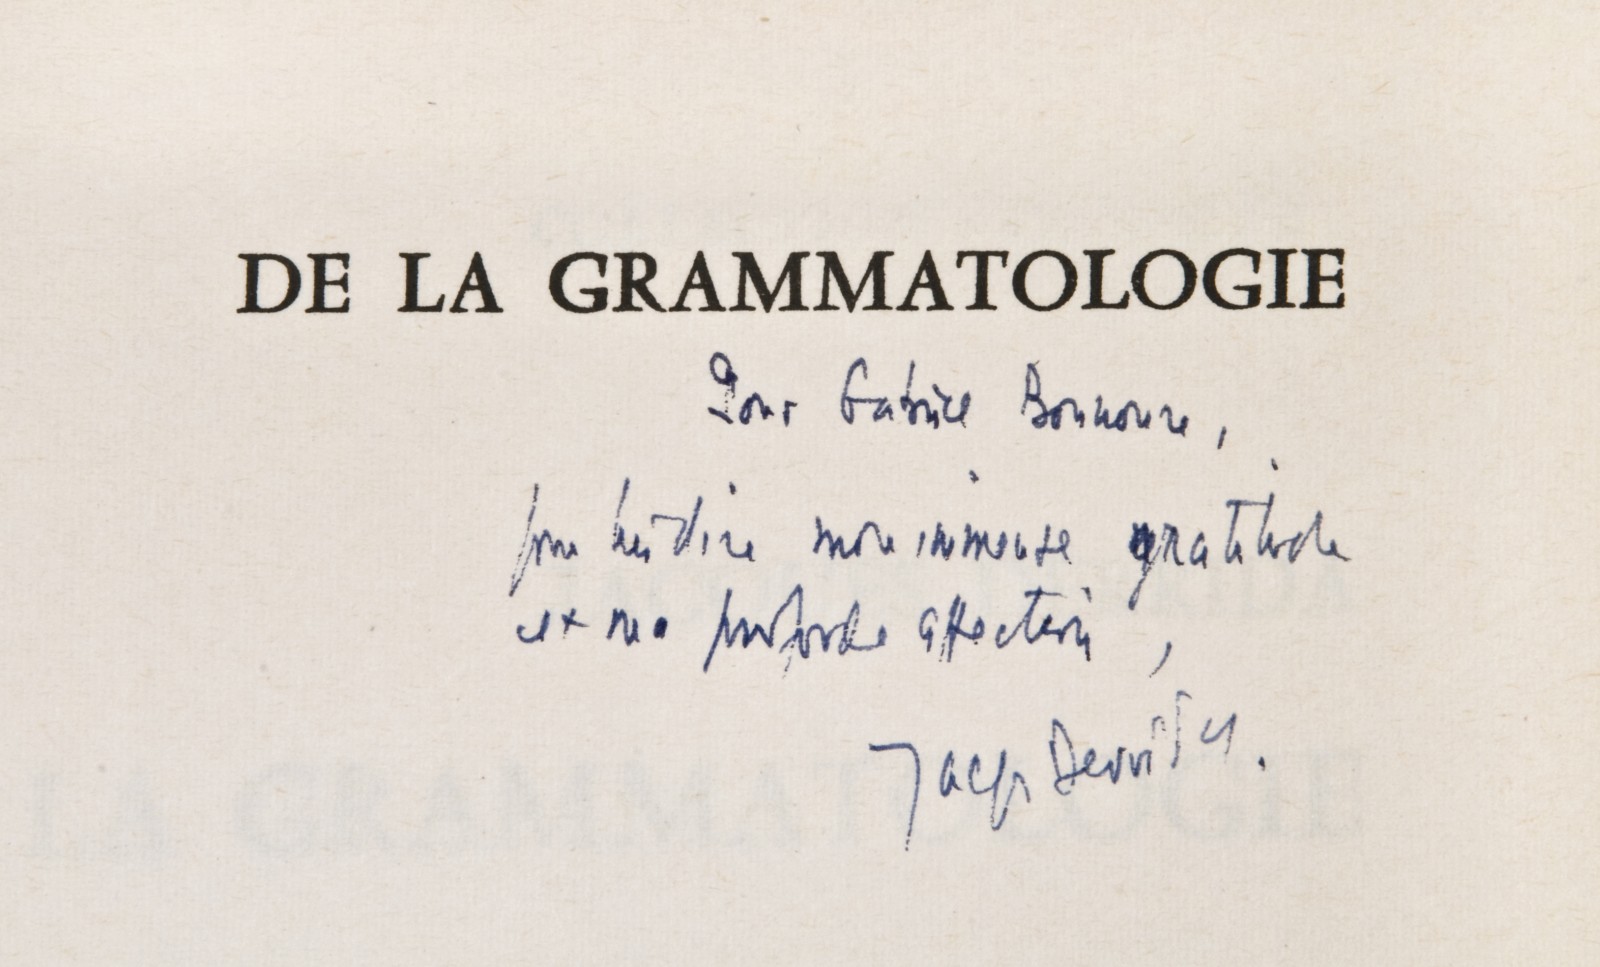 DE LA GRAMMATOLOGIE
Pour Gabrice Bounoure,
pour lui dire mon immense gratitude
et ma profonde affection,
Jacques Derrida.